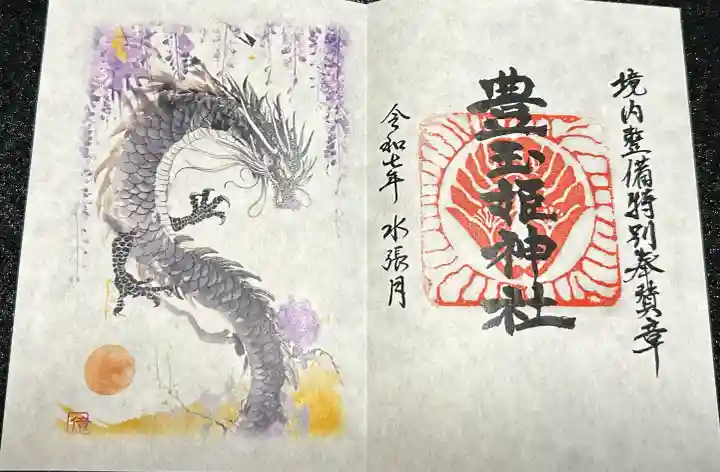 境内整備特別奉賛章
豊玉姫神社
令和七年 水張月